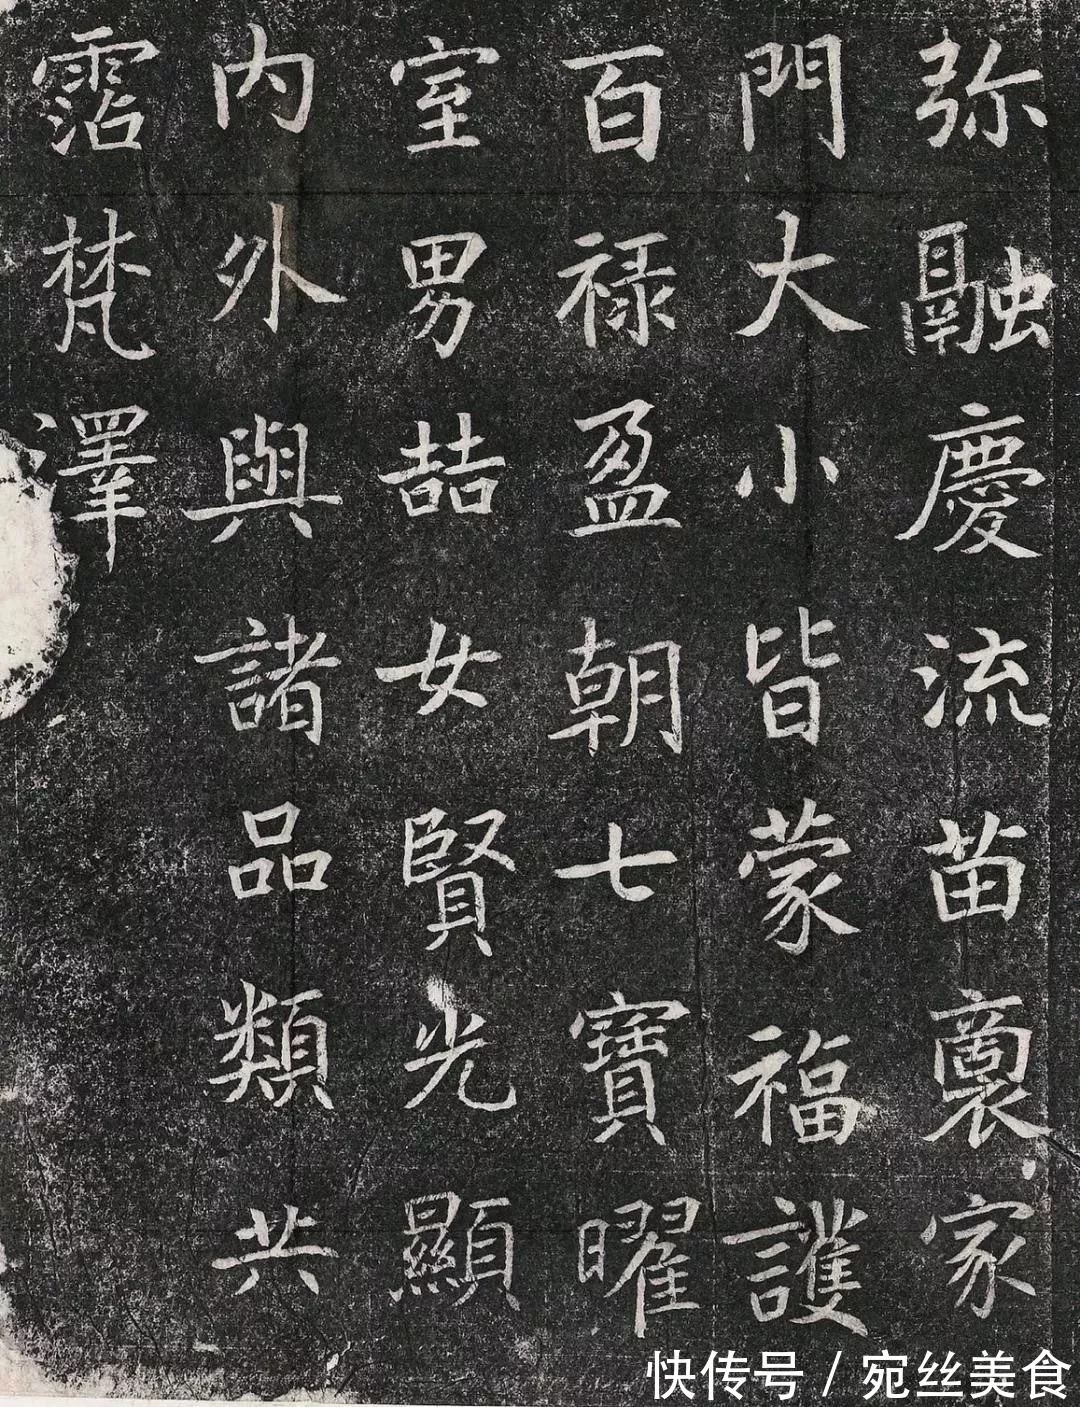 弥融慶流苗裔家
門大小皆蒙福護
百禄盈朝七寶曜
室男喆女賢光顯
内外與諸品類共
霑梵澤
快传号 / 宛丝美食